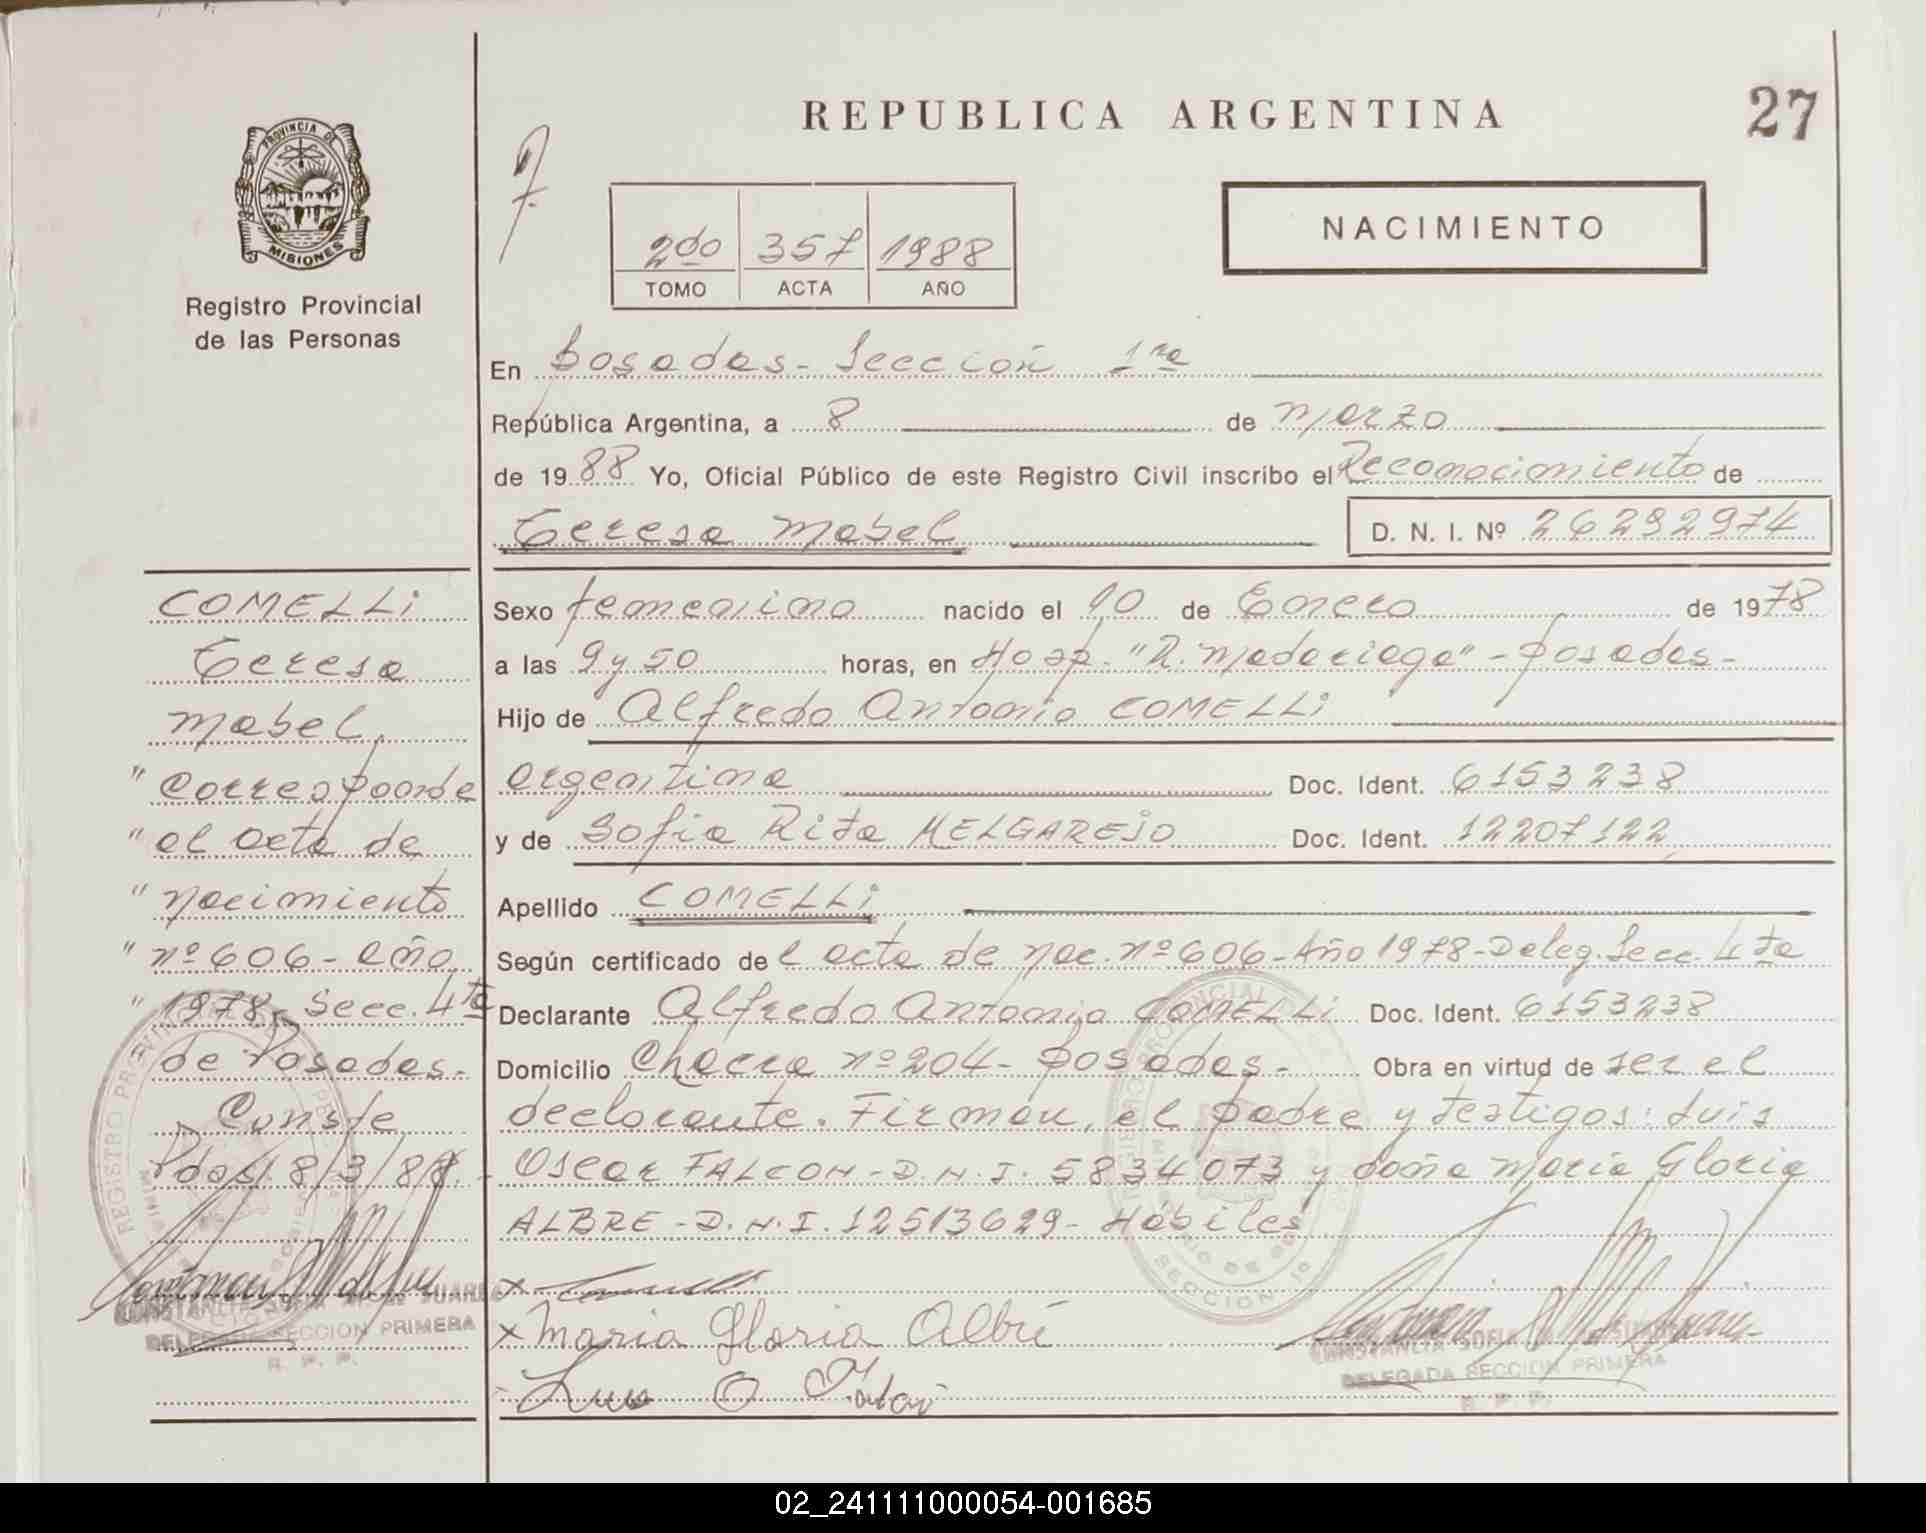 REPUBLICA ARGENTINA
27
PROVINCIA DE
MISIONES
Registro Provincial
de las Personas
2do 357 1988
TOMO ACTA AÑO
NACIMIENTO
En Posadas - Sección 1ra
República Argentina, a 8 de Marzo
de 1988 Yo, Oficial Público de este Registro Civil inscribo el Reconocimiento de
Teresa Mabel D. N. I. Nº 26292974
Sexo femenino nacido el 10 de Enero de 1978
a las 9 y 50 horas, en Hosp. "R. Madariaga" - Posadas -
Hijo de Alfredo Antonio COMELLi
argentina Doc. Ident. 6153238
y de Sofia Rita MELGAREJO Doc. Ident. 12207122
Apellido COMELLi
Según certificado del acta de nac. nº 606 - Año 1978 - Deleg. Secc. 4ta
Declarante Alfredo Antonio COMELLi Doc. Ident. 6153238
Domicilio Chacra nº 204 - Posadas - Obra en virtud de ser el
declarante. Firman, el padre y testigos: Luis
Oscar FALCON - D.N.I. 5834073 y doña Maria Gloria
ALBRE - D.N.I. 12513629 - Hábiles
x
x Maria Gloria Albré
Luis O
CONSTANCIA SOFIA
DELEGADA SECCION PRIMERA
R. P. P.
COMELLi
Teresa
Mabel
" Corresponde
" al acta de
" nacimiento
" nº 606 - año
" 1978 - Secc. 4ta
de Posadas.-
Conste
Pdas. 8/3/88.-
CONSTANCIA SOFIA SUAREZ
DELEGADA SECCION PRIMERA
R. P. P.
02_241111000054-001685